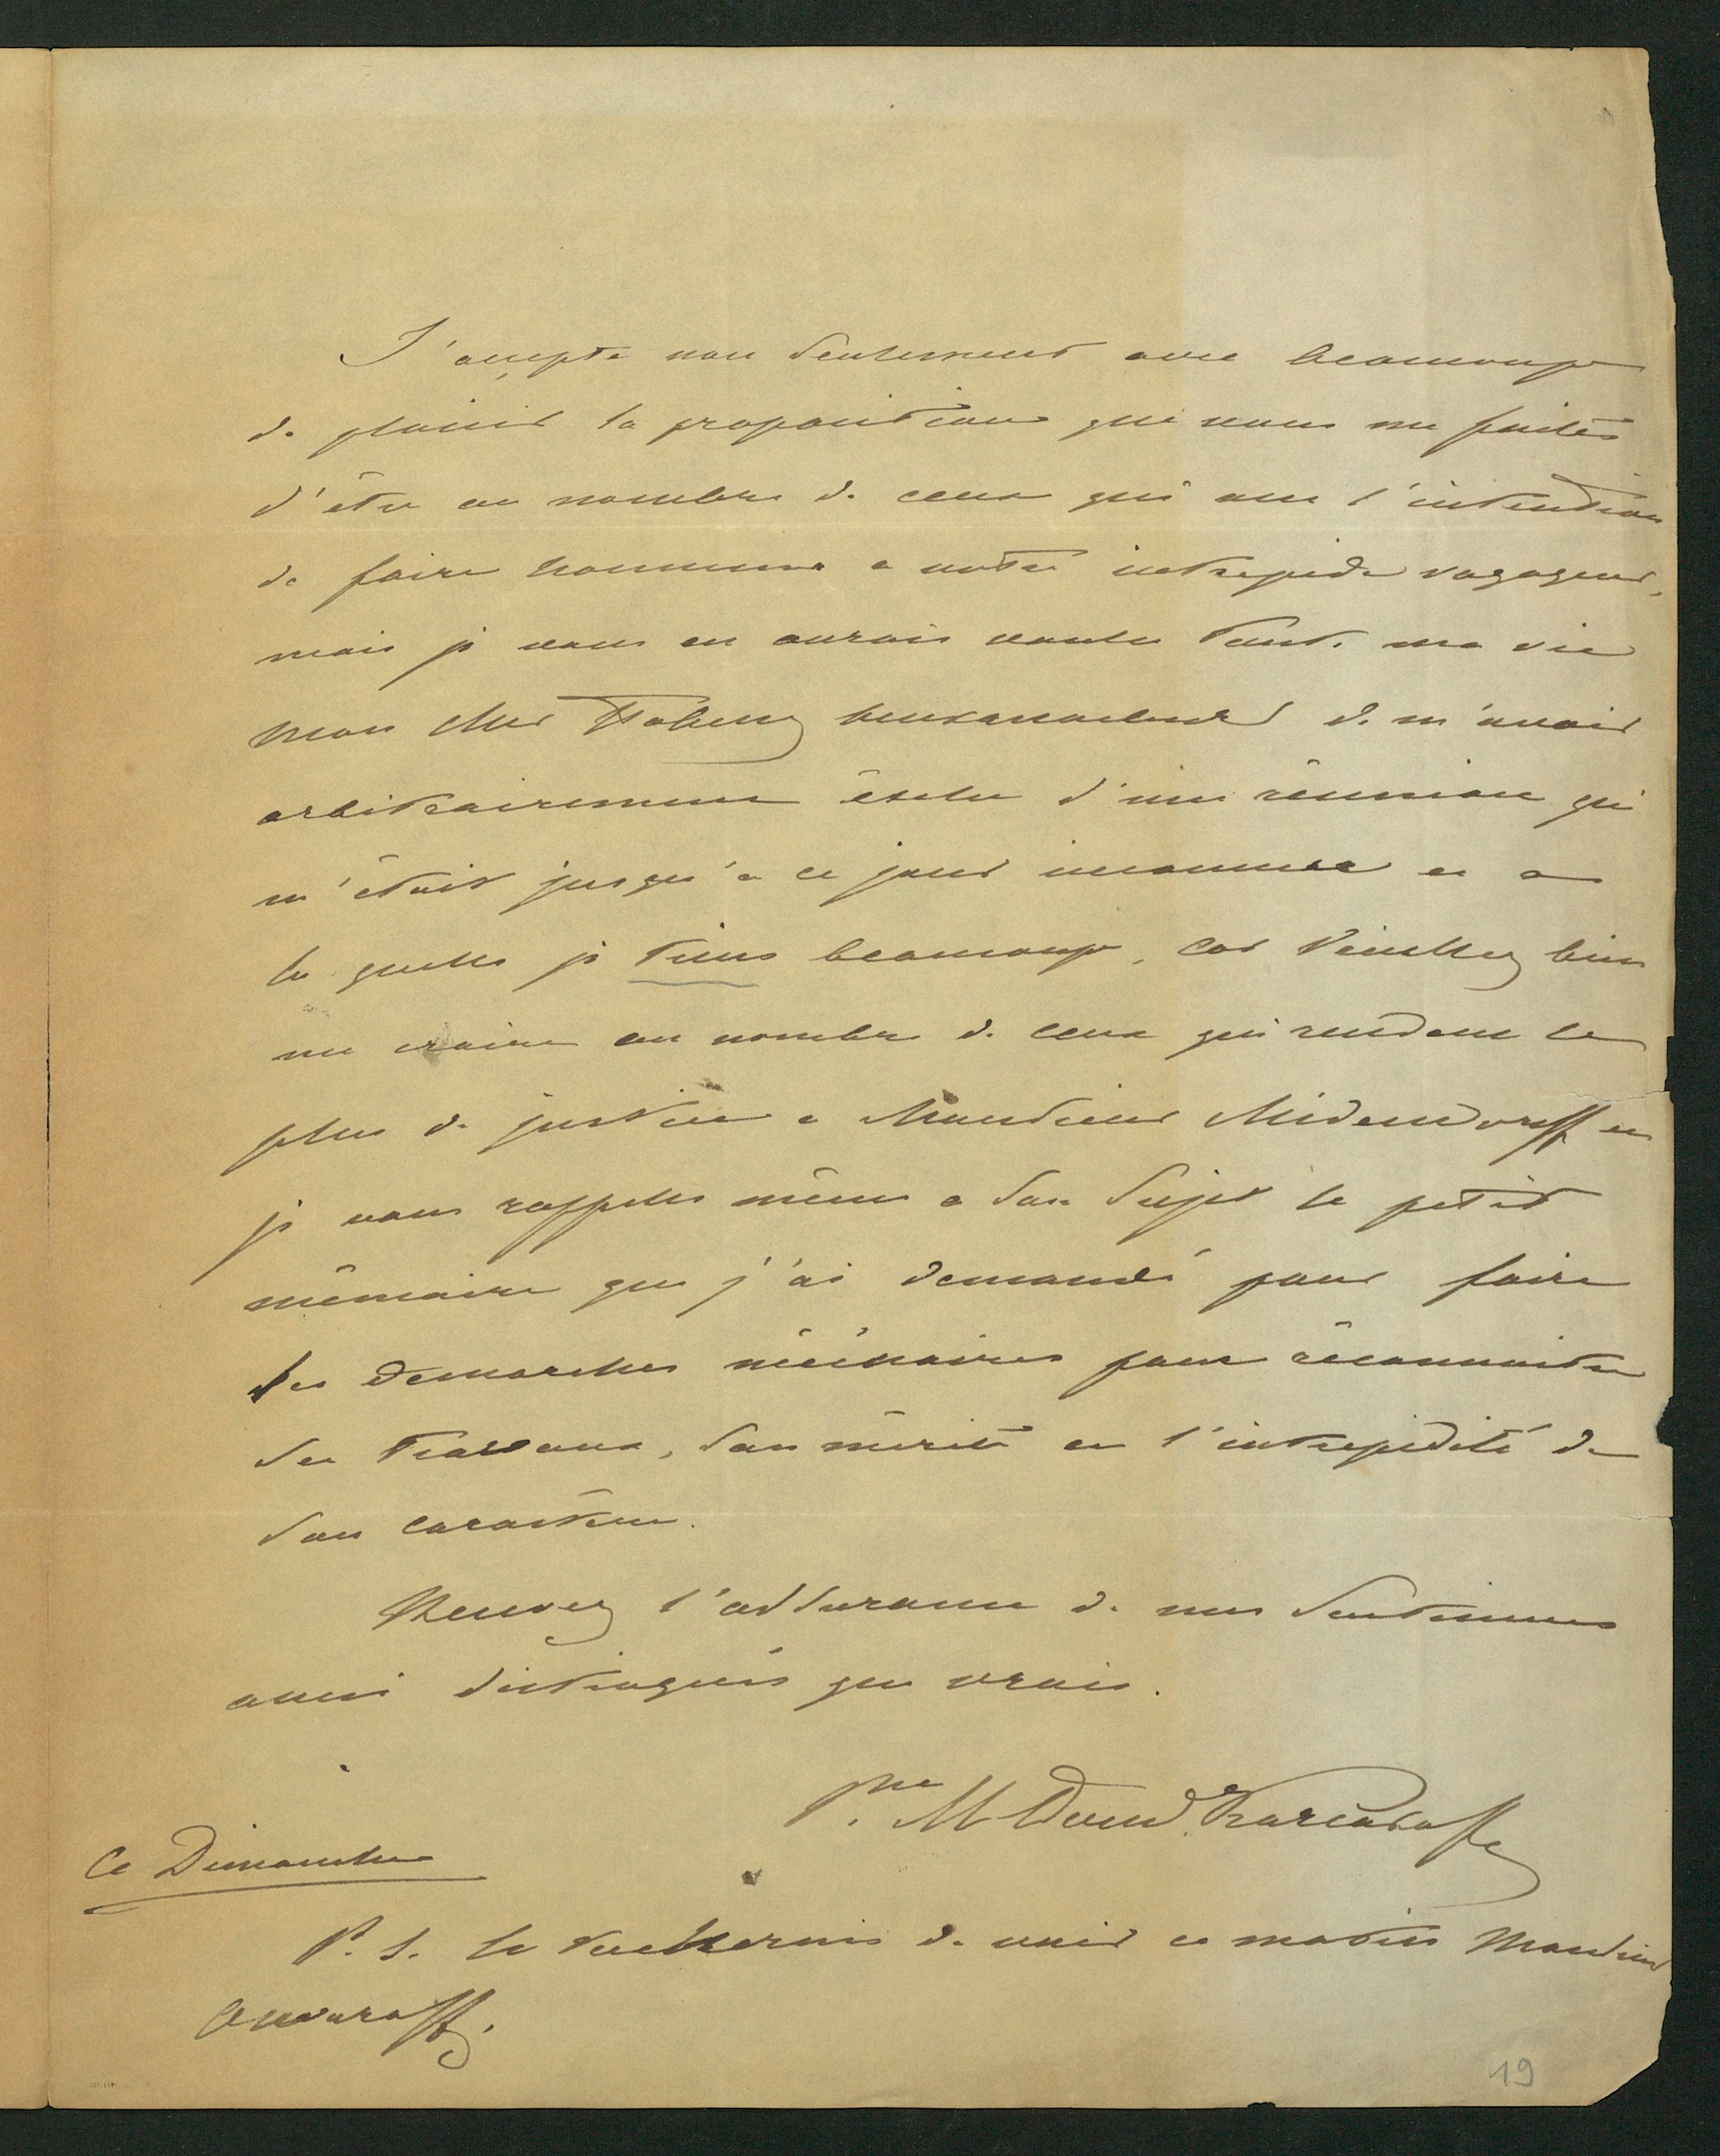 J'accepte non seulement avec beaucoup
de plaisir la proposition que vous me faites
d'être au nombre de ceux qui ont l'intention
de faire honneur a notre intrepide voyageur,
mais je vous en aurais voulu toute ma vie
mon cher de m'avoir
arbitrairement éxclu d'une réunion qui
m'était jusqu'a ce jour inconnue et a
la quelle je tiens beaucoup, car veuillez bien
me croire au nombre de ceux qui rendent le
plus de justice a Monsieur Midendorff et
je vous rappelle même a son sujet le petit
mémoire que j'ai demandé pour faire
les demarches nécéssaires pour réconnaitre
ses travaux, son mérite et l'intrepidité de
son caractère.
Recevez l'assurance de mes sentiments
aussi distingués que vrais.
Pce M Dond. Korsakoff
Ce Dimanche
P. S. Je de voir ce matin Monsieur
Ouvaroff.
19